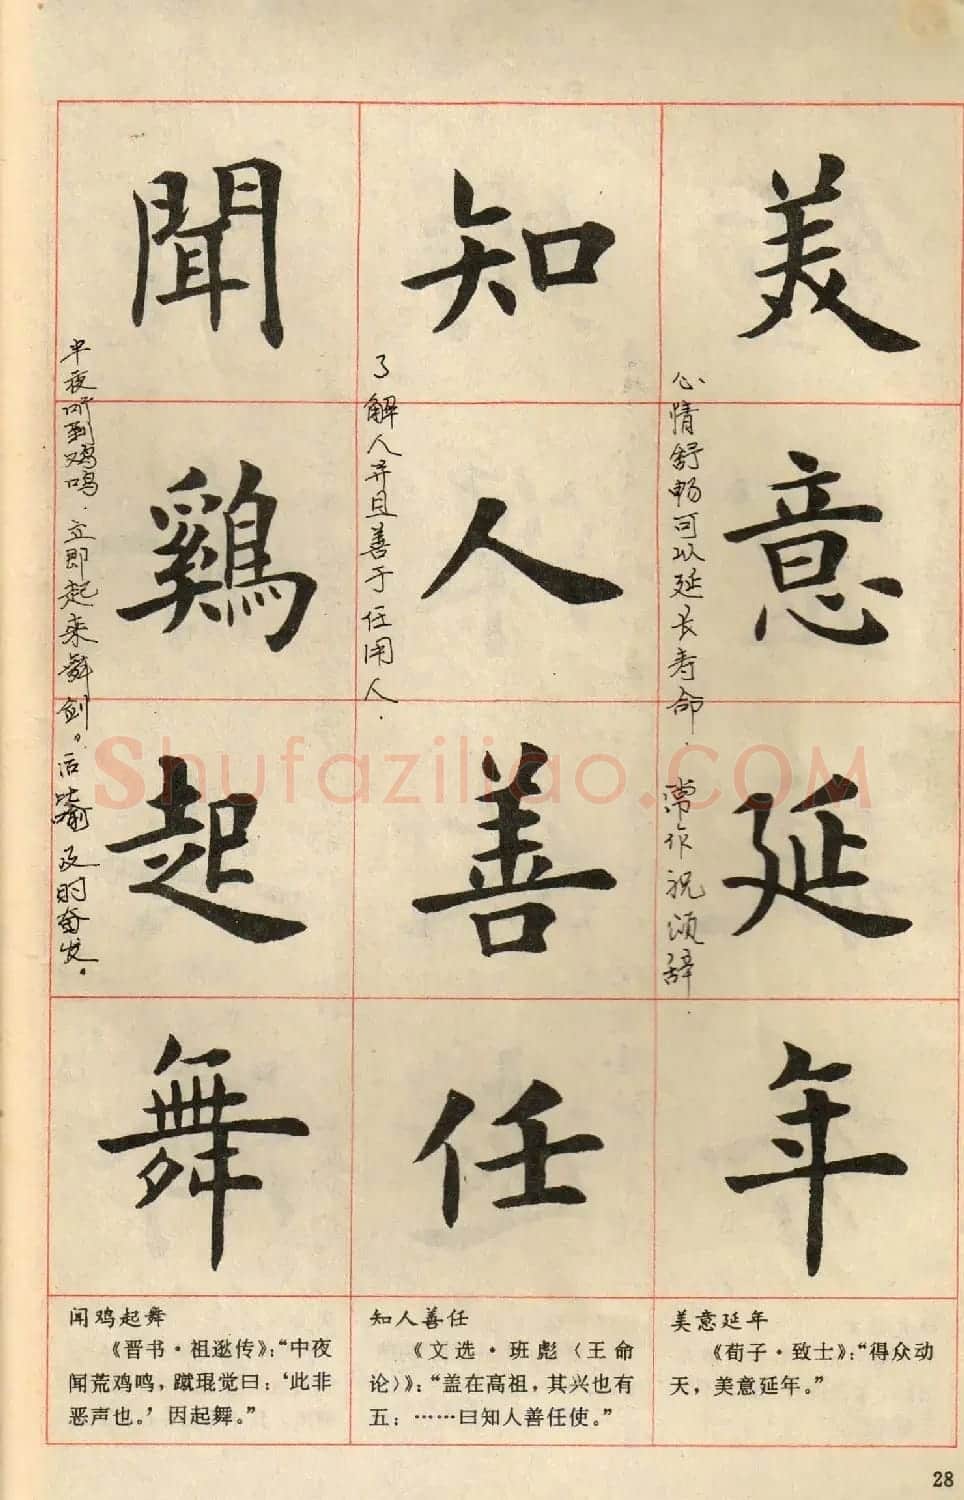 美意延年
心情舒畅可以延长寿命.常作祝颂辞.
知人善任
了解人并且善于任用人.
聞鷄起舞
半夜听到鸡鸣.立即起来舞剑。后比喻及时奋发。
Shufaziliao.COM
美意延年
《荀子·致士》:“得众动
天,美意延年。”
知人善任
《文选·班彪〈王命
论〉》:“盖在高祖,其兴也有
五:……曰知人善任使。”
闻鸡起舞
《晋书·祖逖传》:“中夜
闻荒鸡鸣,蹴琨觉曰:‘此非
恶声也。’因起舞。”
28